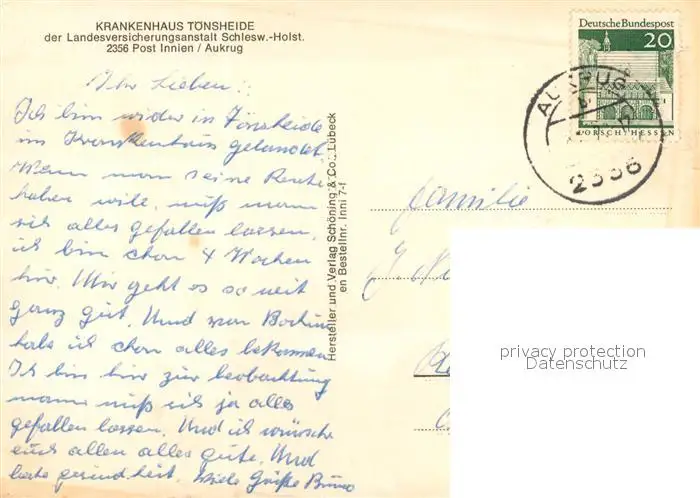 KRANKENHAUS TÖNSHEIDE
der Landesversicherungsanstalt Schlesw.-Holst.
2356 Post Innien / Aukrug
Ihr Lieben!
Ich bin wider in Tönsheide
im Krankenhaus gelandet
Wenn man seine Rente
haben wile, muß mann
sich alles gefallen lassen.
ich bin chon 4 Wochen
hir. Mir geht es so weit
ganz gut. Und von Bochum
habe ich chon alles bekommen
Ich bin hir zür beobachtung
mann muß sich ja alles
gefallen lassen. Und ich wünsche
euch allen alles gute. Und
gesündheit. Viele Grüße Bruno
Hersteller und Verlag Schöning & Co., Lübeck
en Bestellnr. Inni 7-f
Deutsche Bundespost
20
LORSCH/HESSEN
AUKRUG
2356
Familie
privacy protection
Datenschutz